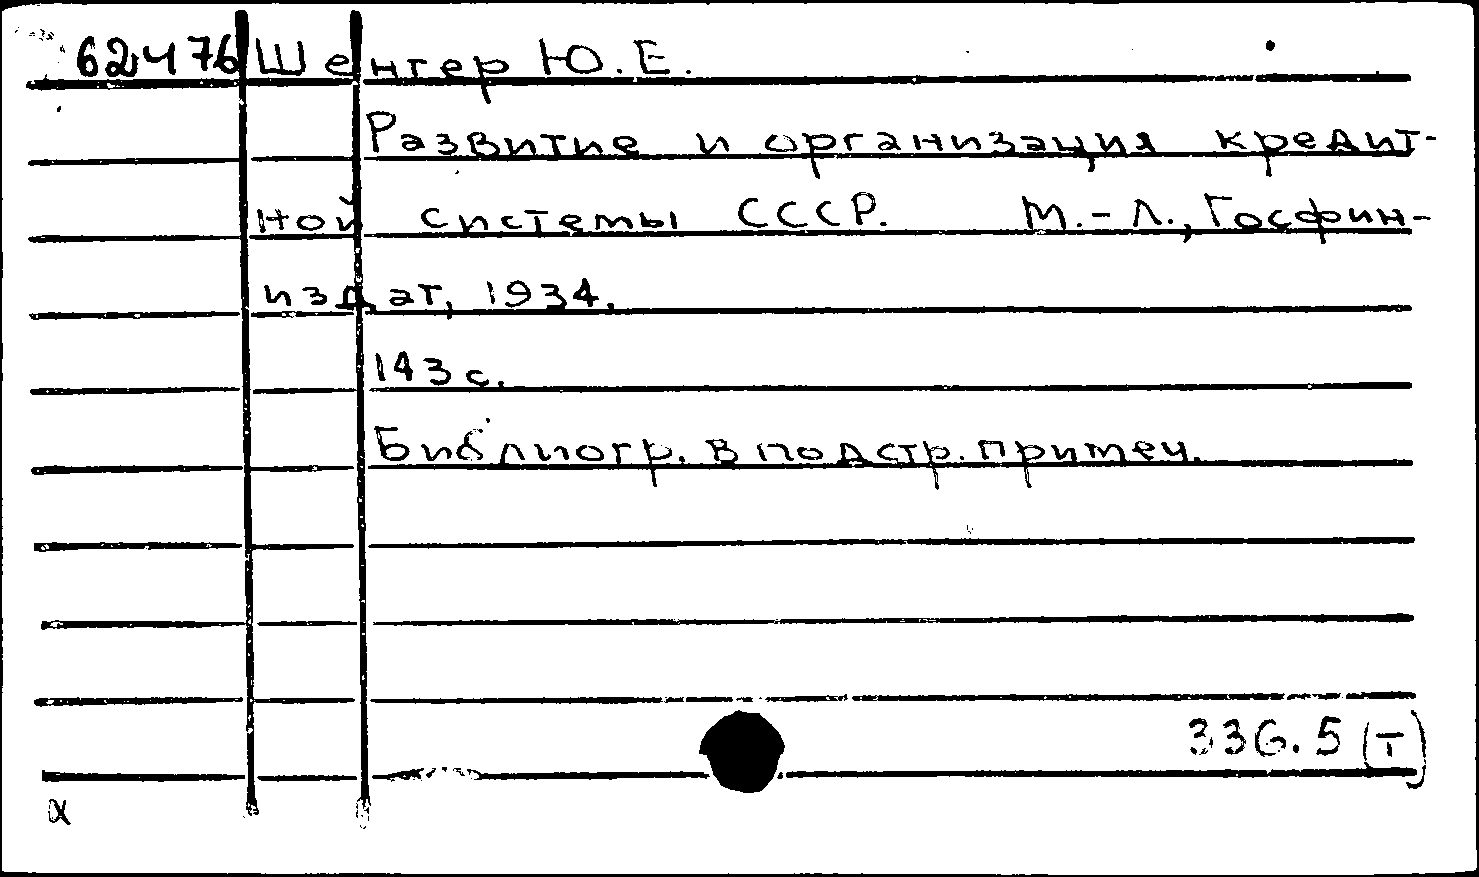 62476 Шенгер Ю.Е.
Развитие и организация кредит-
ной системы СССР. М.-Л., Госфин-
издат, 1934.
143 с.
Библиогр. в подстр. примеч.
336.5 (Т)
α